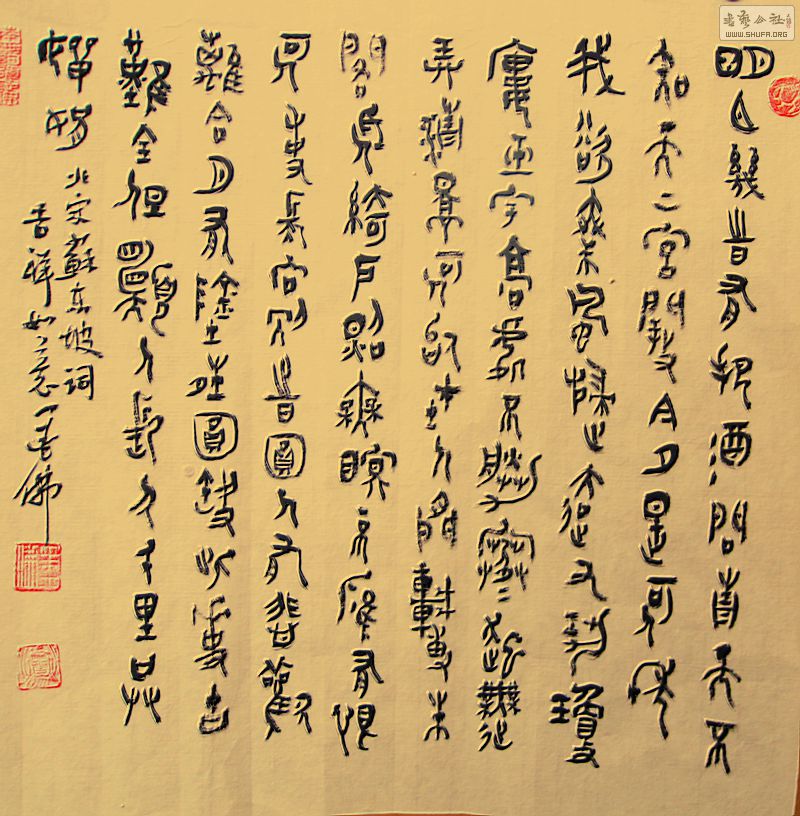 明月幾時有把酒問青天不
知天上宮闕今夕是何年
我欲乘風歸去又恐瓊
樓玉宇高處不勝寒起舞
弄清影何似在人間轉朱
閣低綺戶照無眠不應有恨
何事長向別時圓人有悲歡
離合月有陰晴圓缺此事古
難全但願人長久千里共
嬋娟
北宋蘇東坡詞
吉祥如意
書藝公社
WWW.SHUFA.ORG